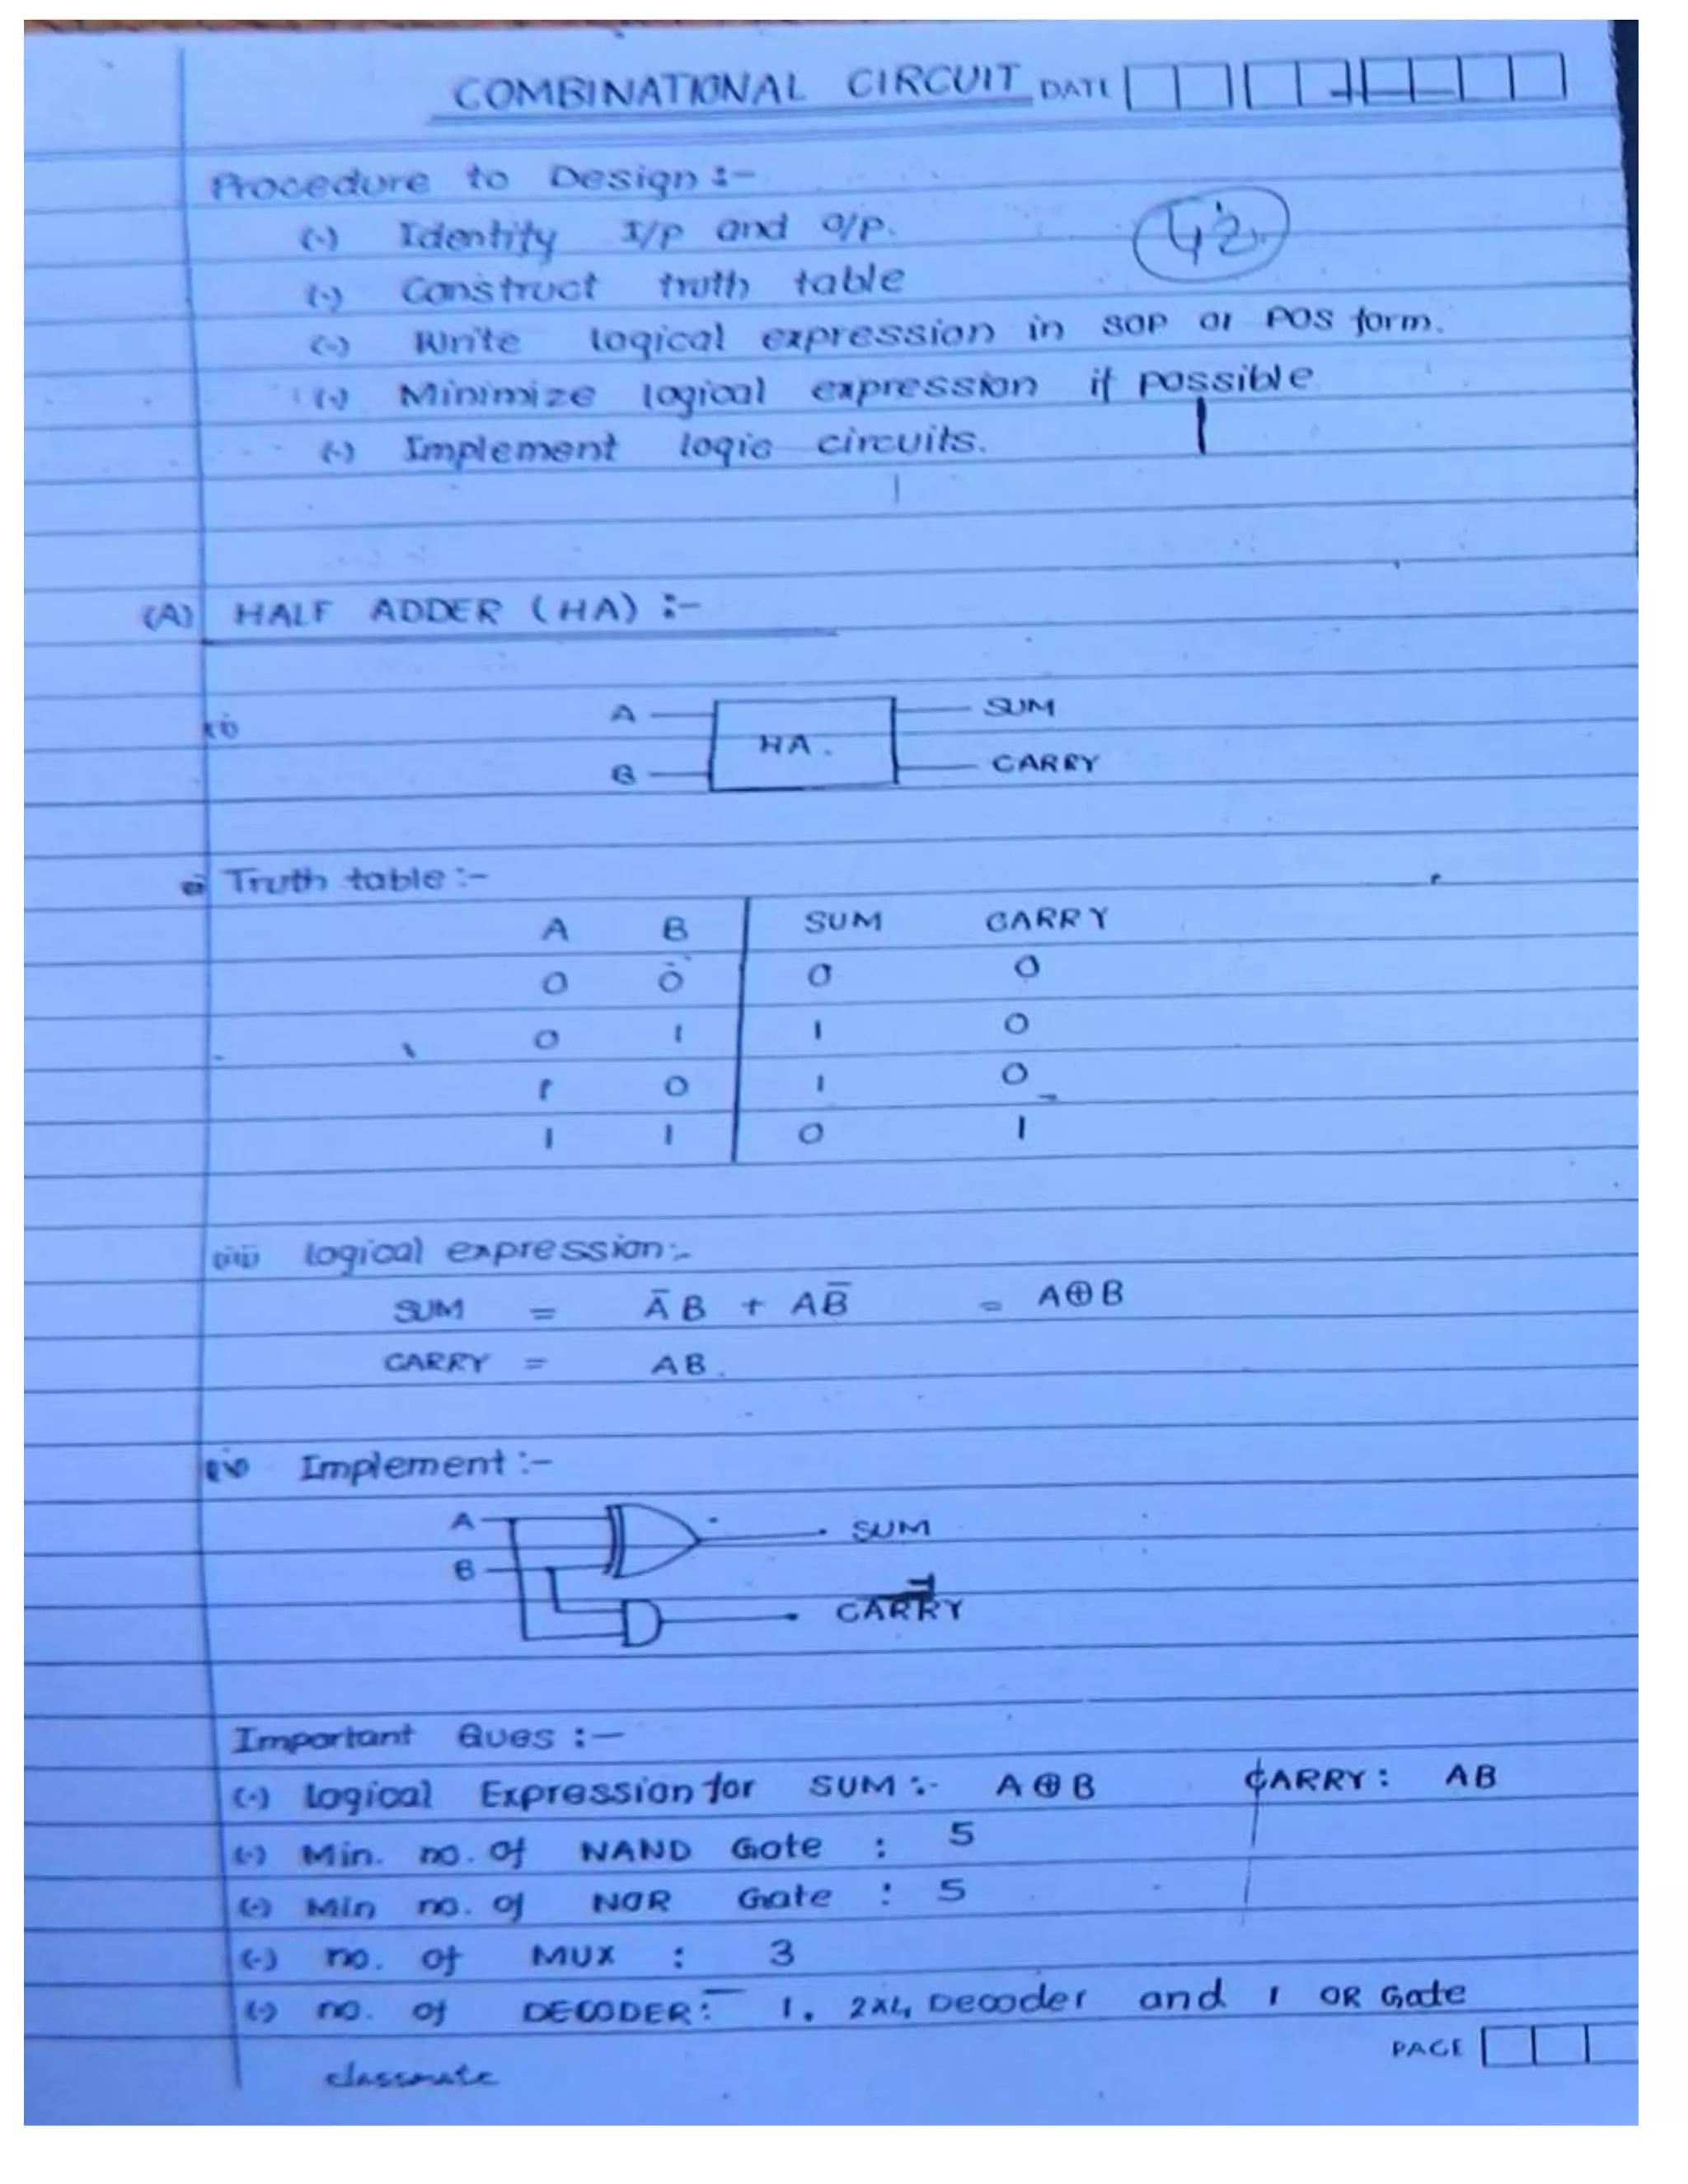 COMBINATIONAL CIRCUIT DATE
Procedure to Design :-
(-) Identity I/P and O/P.
42
(-) Construct truth table
(-) Write logical expression in SOP or POS form.
(-) Minimize logical expression if possible
(-) Implement logic circuits.
(A) HALF ADDER (HA) :-
(i)
A HA. SUM
B CARRY
(ii) Truth table :-
A B SUM CARRY
0 0 0 0
0 1 1 0
1 0 1 0
1 1 0 1
(iii) logical expression:-
SUM = A̅B + AB̅ = A⊕B
CARRY = AB.
(iv) Implement :-
A SUM
B
CARRY
Important Ques :-
(-) logical Expression for SUM :- A⊕B CARRY : AB
(-) Min. no. of NAND Gate : 5
(-) Min no. of NOR Gate : 5
(-) no. of MUX : 3
(-) no. of DECODER: 1. 2x4 Decoder and 1 OR Gate
PAGE
classmate